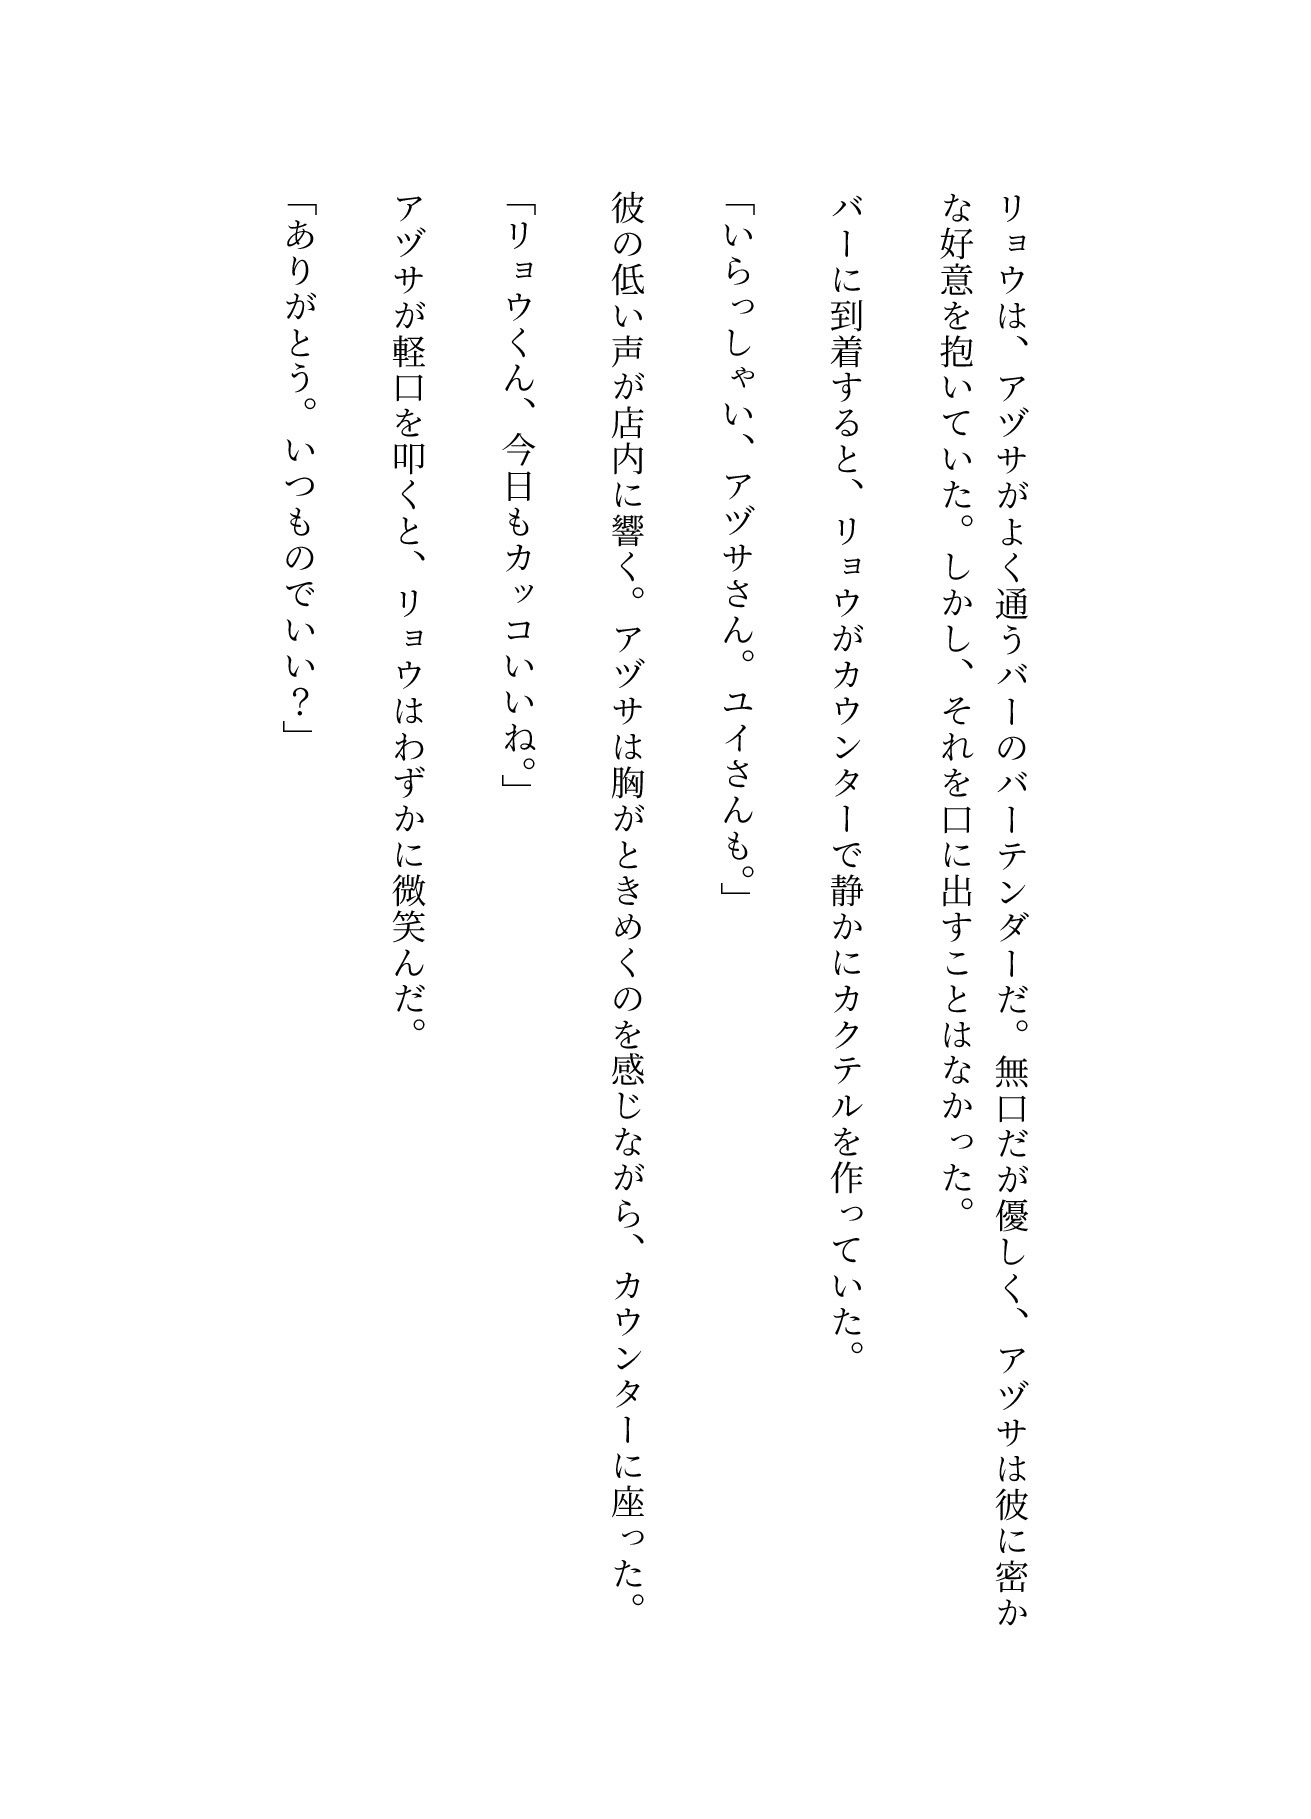 リョウは、アヅサがよく通うバーのバーテンダーだ。無口だが優しく、アヅサは彼に密か
な好意を抱いていた。しかし、それを口に出すことはなかった。
バーに到着すると、リョウがカウンターで静かにカクテルを作っていた。
「いらっしゃい、アヅサさん。ユイさんも。」
彼の低い声が店内に響く。アヅサは胸がときめくのを感じながら、カウンターに座った。
「リョウくん、今日もカッコいいね。」
アヅサが軽口を叩くと、リョウはわずかに微笑んだ。
「ありがとう。いつものでいい？」